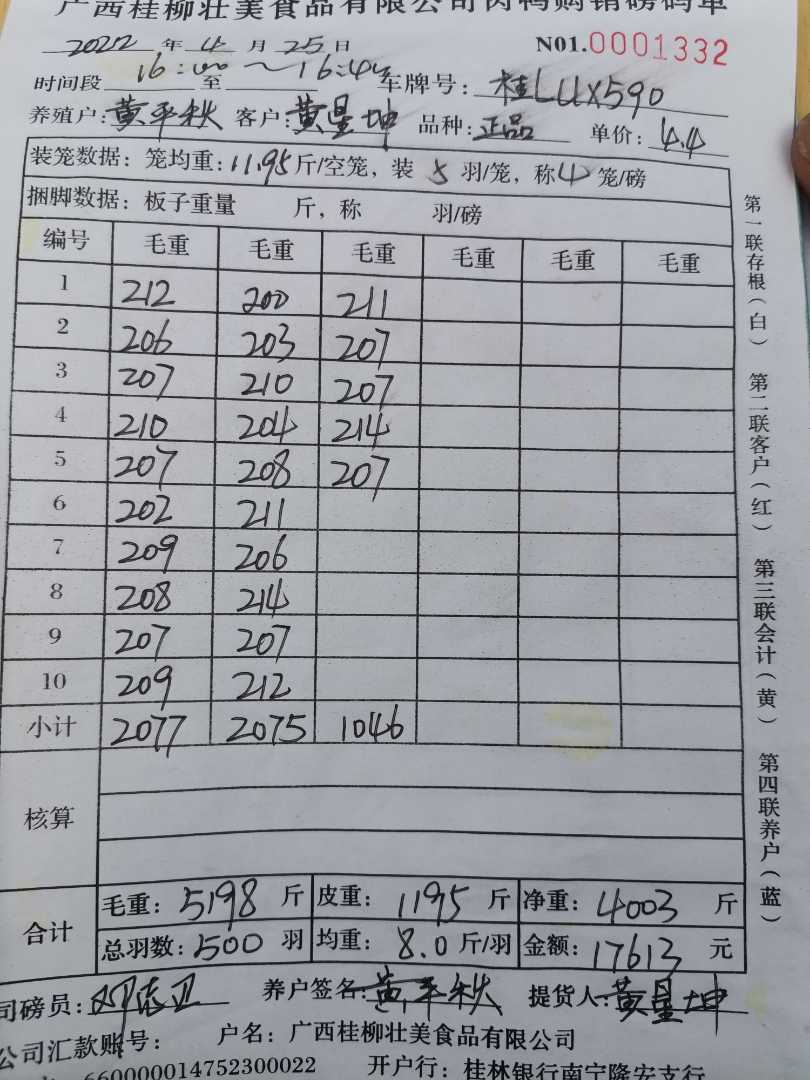 广西桂柳壮美食品有限公司肉鸭购销磅码单
2022 年 4 月 25 日 N01.0001332
时间段 16:00 至 ~16:44 车牌号: 桂LUX590
养殖户: 黄平秋 客户: 黄星坤 品种: 正品 单价: 4.4
装笼数据: 笼均重: 11.95 斤/空笼, 装 5 羽/笼, 称 4 笼/磅
捆脚数据: 板子重量 斤, 称 羽/磅
编号 毛重 毛重 毛重 毛重 毛重 毛重
1 212 200 211
2 206 203 207
3 207 210 207
4 210 204 214
5 207 208 207
6 202 211
7 209 206
8 208 214
9 207 207
10 209 212
小计 2077 2075 1046
核算
合计
毛重: 5198 斤 皮重: 1195 斤 净重: 4003 斤
总羽数: 500 羽 均重: 8.0 斤/羽 金额: 17613 元
司磅员: 邓志卫 养户签名: 黄平秋 提货人: 黄星坤
公司汇款账号: 户名: 广西桂柳壮美食品有限公司
660000014752300022 开户行: 桂林银行南宁隆安支行
第一联存根(白) 第二联客户(红) 第三联会计(黄) 第四联养户(蓝)